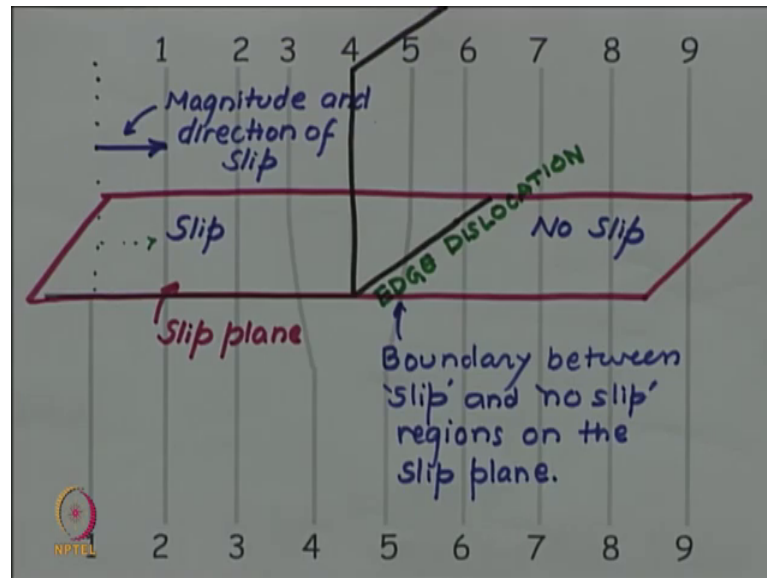 1 2 3 4 5 6 7 8 9
Magnitude and
direction of
slip
Slip
No Slip
EDGE DISLOCATION
Slip plane
Boundary between
'slip' and 'no slip'
regions on the
slip plane.
NPTEL
1 2 3 4 5 6 7 8 9